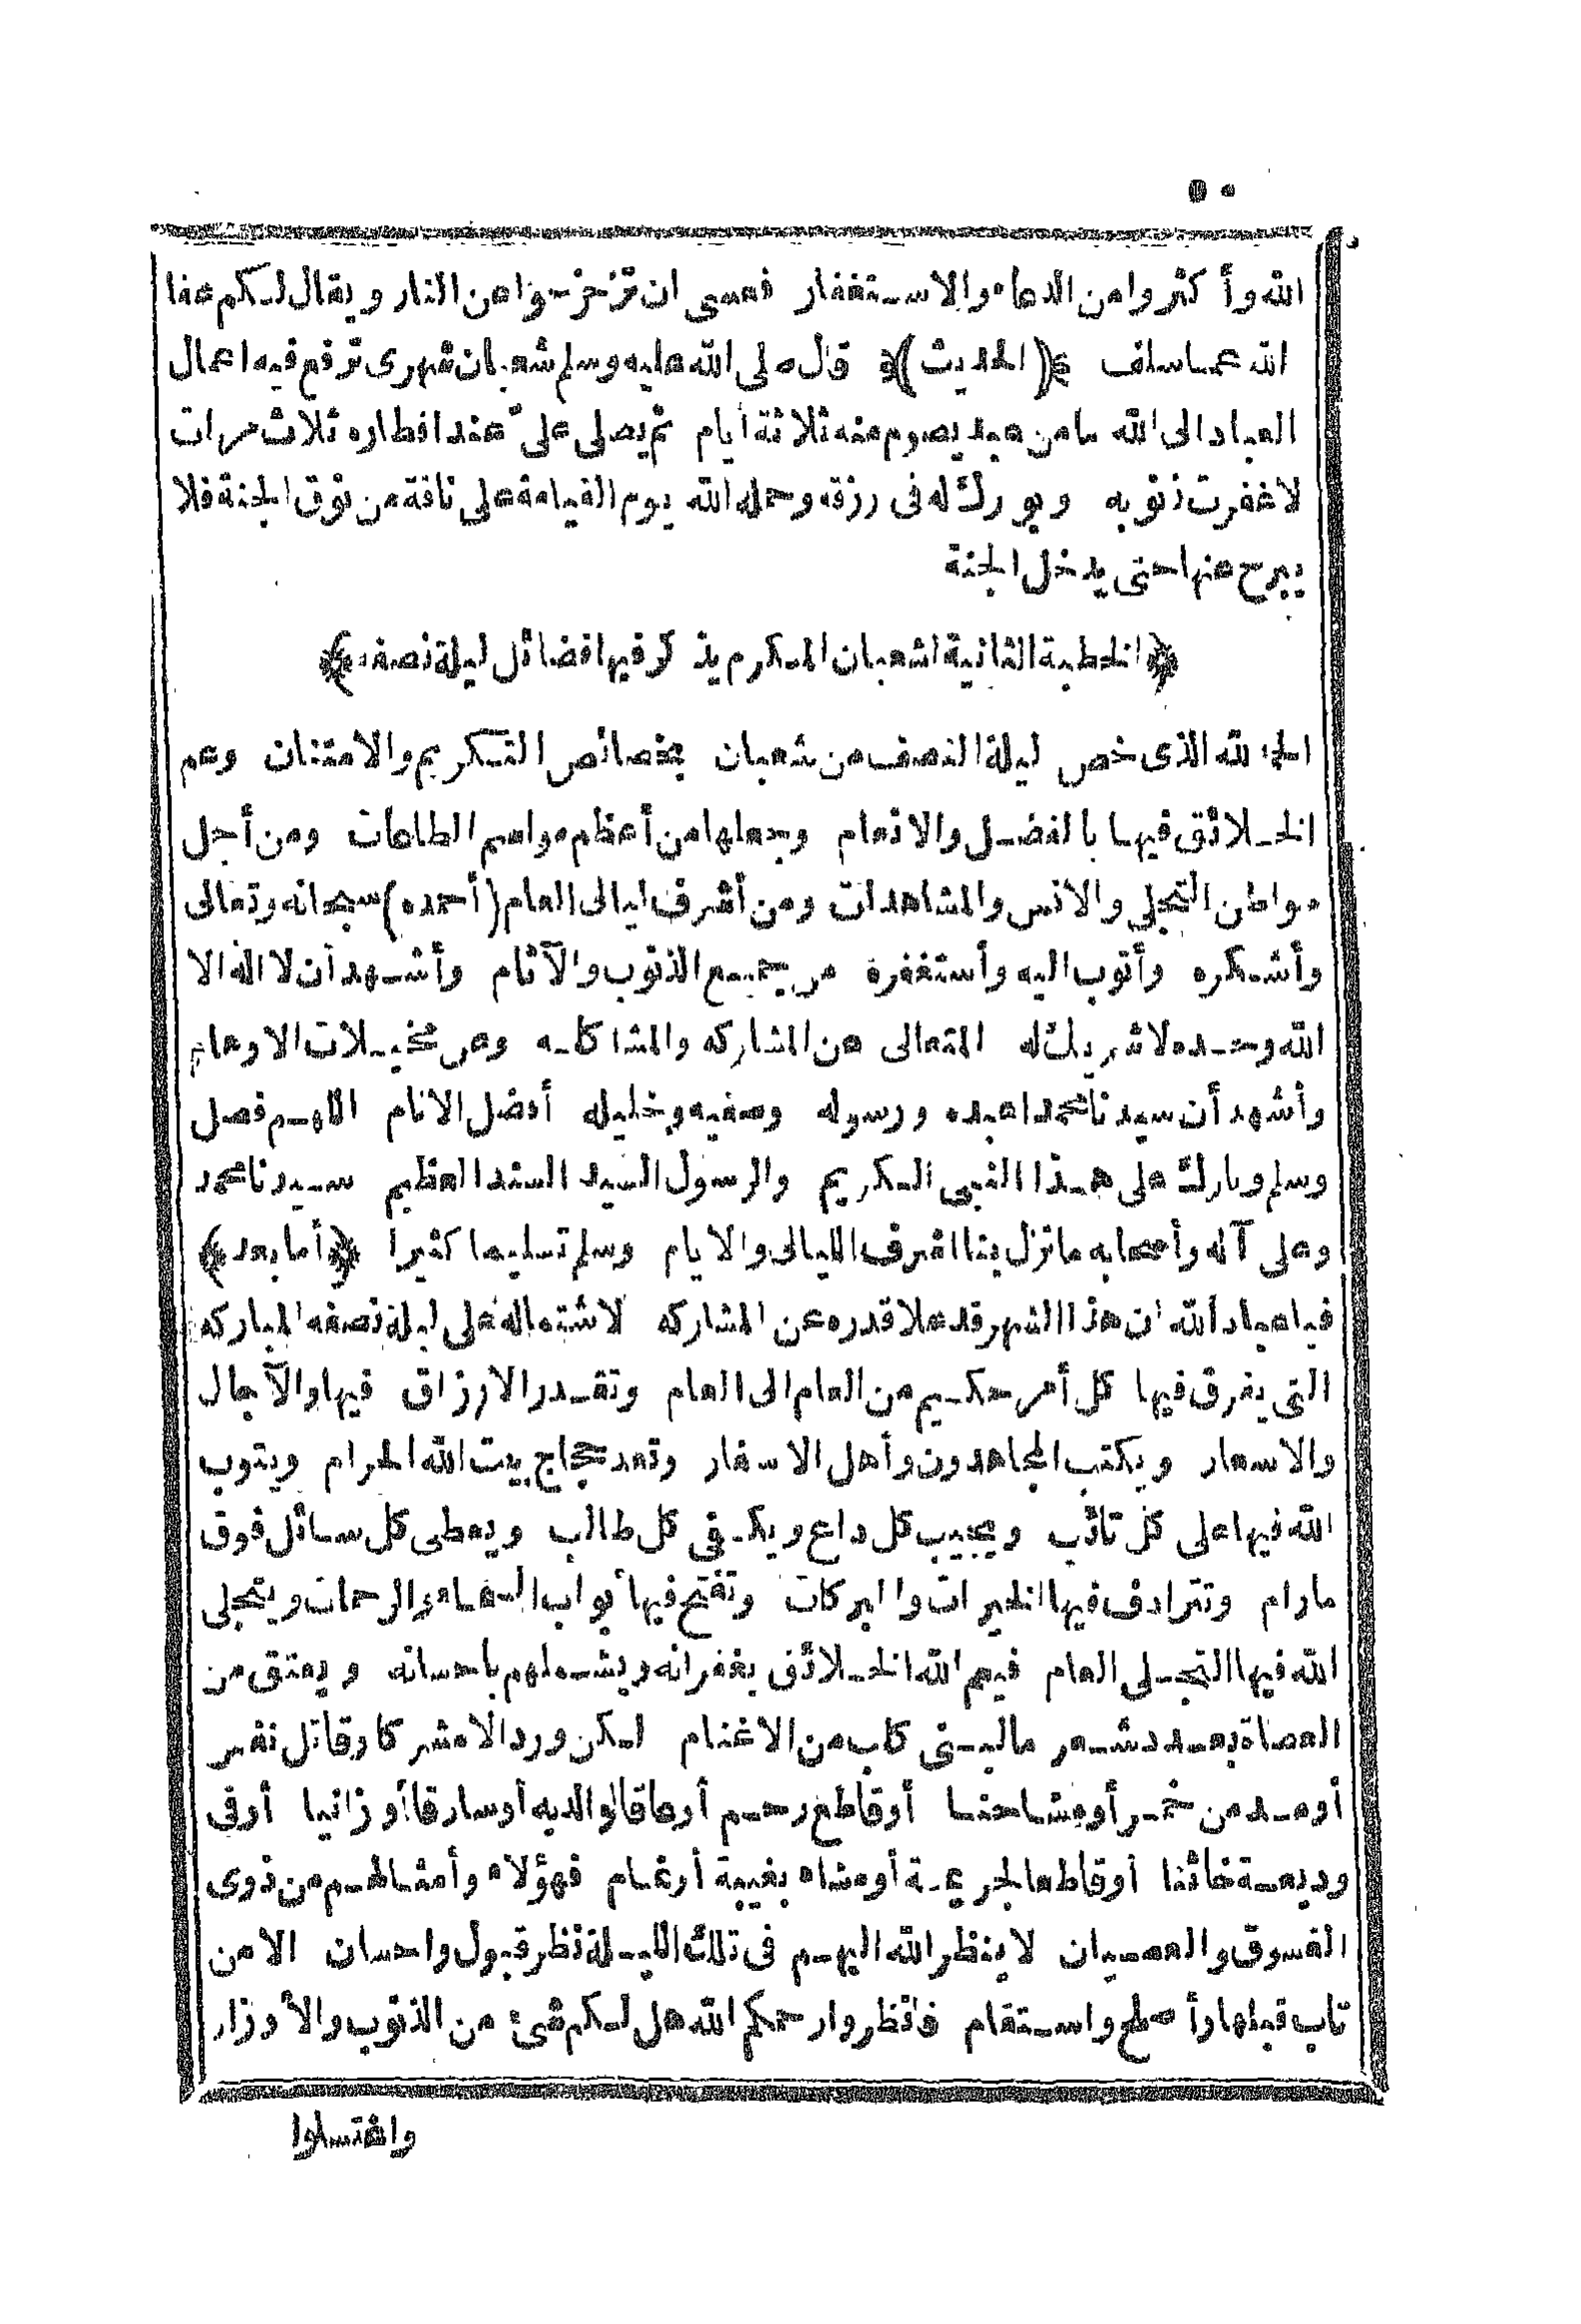 ٥٠
الله وأكثروا من الدعاء والاستغفار فعسى ان تزحزحوا عن النار ويقال لكم عفا
الله عما سلف ﴿(الحديث)﴾ قال صلى الله عليه وسلم شعبان شهرى ترفع فيه اعمال
العباد الى الله ما من عبد يصوم منه ثلاثة أيام ثم يصلى علىّ عند افطاره ثلاث مرات
لا غفرت ذنوبه وبورك له فى رزقه وحمله الله يوم القيامة على ناقة من نوق الجنة فلا
يبرح عنها حتى يدخل الجنة
﴿الخطبة الثانية لشعبان المكرم يذكر فيها فضائل ليلة نصفه﴾
الحمد لله الذى خص ليلة النصف من شعبان بخصائص التكريم والامتنان وعم
الخلائق فيها بالفضل والانعام وجعلها من أعظم مواسم الطاعات ومن أجل
مواطن التجلى والانس والمشاهدات ومن أشرف ليالى العام (أحمده) سبحانه وتعالى
وأشكره وأتوب اليه وأستغفره من جميع الذنوب والآثام وأشهد أن لا اله الا
الله وحده لا شريك له المتعالى عن المشاركه والمشاكله وعن مخيلات الاوهام
وأشهد أن سيدنا محمدا عبده ورسوله وصفيه وخليله أفضل الانام اللهم فصل
وسلم وبارك على هذا النبى الكريم والرسول السيد السند العظيم سيدنا محمد
وعلى آله وأصحابه ما نزل بنا اشرف الليالى والايام وسلم تسليما كثيرا ﴿أما بعد﴾
فيا عباد الله ان هذا الشهر قد علا قدره عن المشاركه لاشتماله على ليلة نصفه المباركه
التى يفرق فيها كل أمر حكيم من العام الى العام وتقدر الارزاق فيها والآجال
والاسعار ويكتب المجاهدون وأهل الاسفار وتعد حجاج بيت الله الحرام ويتوب
الله فيها على كل تائب ويجيب كل داع ويكفى كل طالب ويعطى كل سائل فوق
ما رام وتترادف فيها الخيرات والبركات وتفتح فيها أبواب السماء والرحمات ويتجلى
الله فيها التجلى العام فيعم الله الخلائق بغفرانه ويشملهم باحسانه ويعتق من
العصاة بعدد شعر ما لبنى كلب من الاغنام لكن ورد الا مشركا وقاتل نفس
أو مدمن خمر أو مشاحنا أو قاطع رحم أو عاقا لوالديه أو سارقا أو زانيا أو فى
وديعة خائنا أو قاطعا لجريمة أو مشاء بغيبة أو نمام فهؤلاء وأمثالهم من ذوى
الفسوق والعصيان لا ينظر الله اليهم فى تلك الليلة نظر قبول واحسان الا من
تاب قبلها وأصلح واستقام فانظروا رحمكم الله هل لكم شئ من الذنوب والأوزار
واغتسلوا